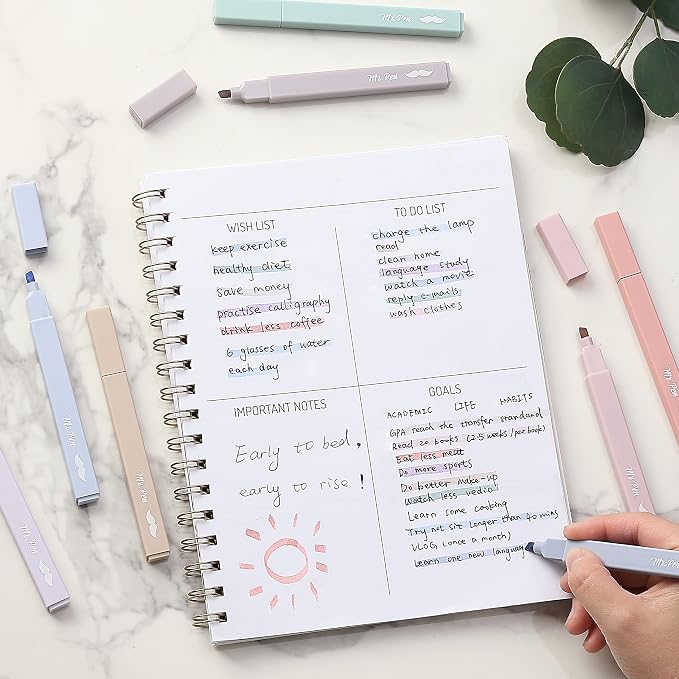 Mr.Pen
Mr.Pen
WISH LIST
keep exercise
healthy diet
save money
practise calligraphy
drink less coffee
6 glasses of water
each day
TO DO LIST
charge the lamp
read
clean home
language study
watch a movie
reply e-mails
wash clothes
IMPORTANT NOTES
Early to bed,
early to rise!
GOALS
ACADEMIC LIFE HABITS
GPA reach the transfer standard
Read 20 books (2.5 weeks/per book)
Eat less meat
Do more sports
Do better make-up
Watch less vedio
Learn some cooking
Try not sit longer than 40 mins
VLOG (once a month)
Learn one new language
Mr.Pen
Mr.Pen
Mr.Pen
Mr.Pen
Mr.Pen